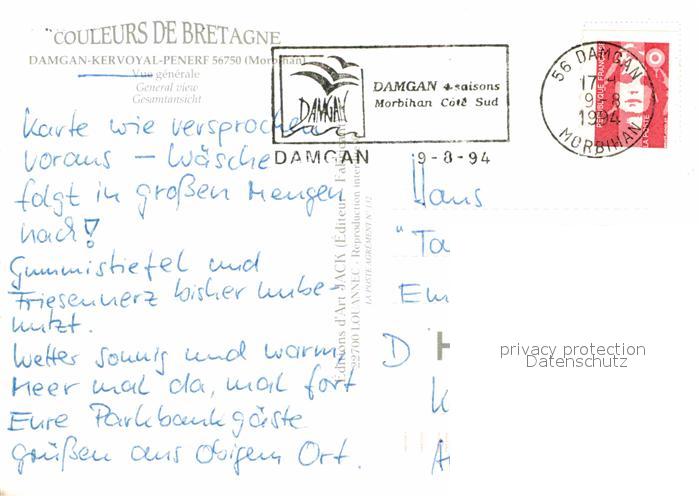 COULEURS DE BRETAGNE
DAMGAN-KERVOYAL-PENERF 56750 (Morbihan)
Vue générale
General view
Gesamtansicht
DAMGAN
DAMGAN 4 saisons
Morbihan Côté Sud
DAMGAN 9-8-94
56 DAMGAN
17-H
9-8
1994
MORBIHAN
Karte wie versprochen
voraus – Wäsche
folgt in großen Mengen
nach!
Gummistiefel und
Friesennerz bisher unbe-
nutzt.
Wetter sonnig und warm,
Meer mal da, mal fort
Eure Parkbankgäste
grüßen aus obigem Ort.
Éditions d'Art JACK (Éditeur
22700 LOUANNEC - Reproduction inter
LA POSTE AGRÉMENT N° 112
Hans
"Ta
Em
D
K
privacy protection
Datenschutz